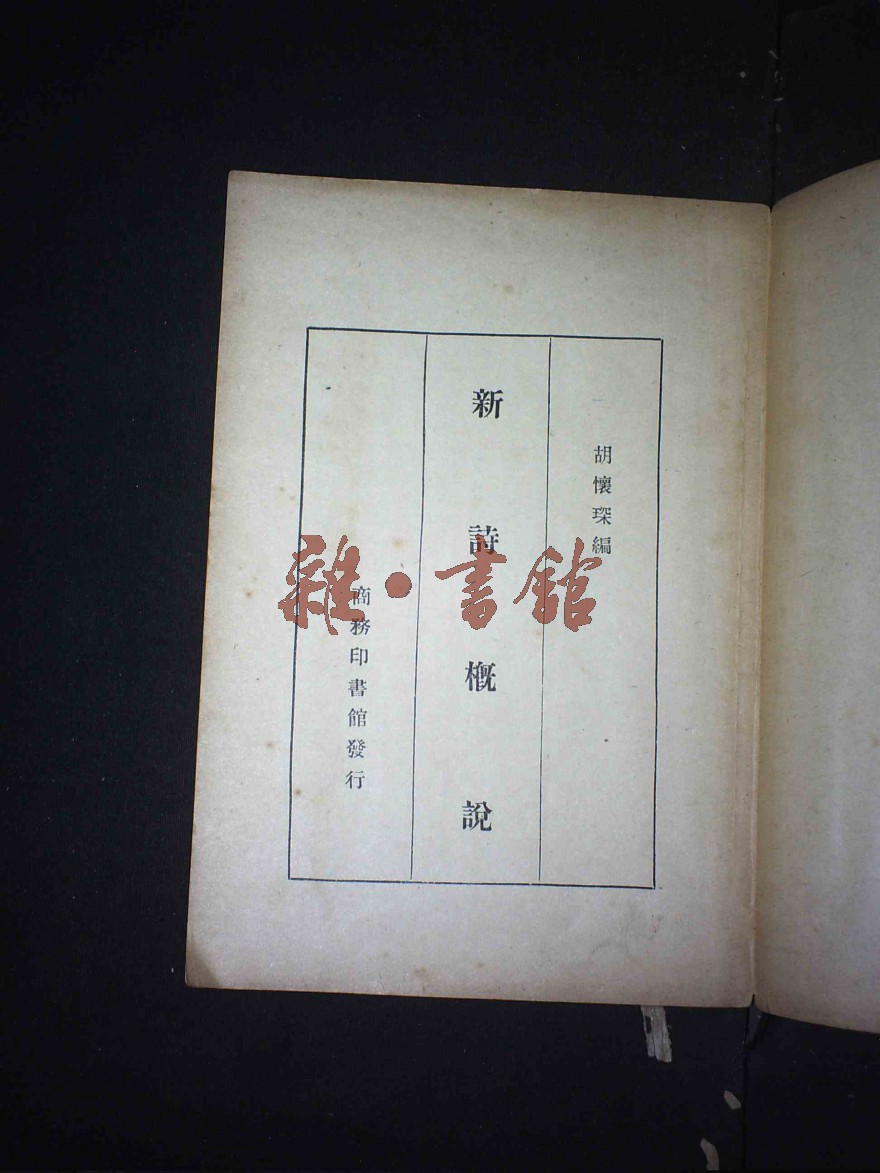 胡懷琛編
新詩槪說
商務印書館發行
雜·書館